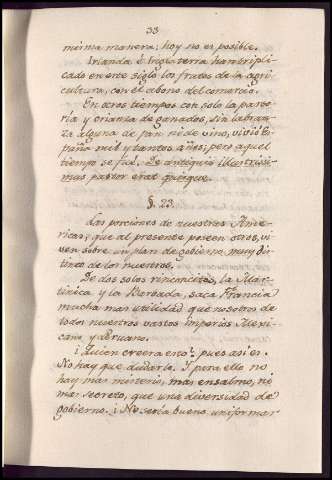 33
misma manera; hoy no es posible.
Irlanda è Inglaterra han tripli-
cado en este siglo los frutos de la agri-
cultura, con el abono del comercio.
En otros tiempos con solo la pasto-
ria y crianza de ganados, sin labran-
za alguna de pan ni de vino, vivió Es-
paña mil y tantos años; pero aquel
tiempo se fué. De antiquis illustrissi-
mus pastor erat quisque.
§. 23.
Las porciones de nuestras Ame-
ricas; que al presente poseen otros, vi-
ven sobre un plan de gobierno muy dis-
tinto de los nuestros.
De dos solos rinconcitos, la Mar-
tinica y la Borbada, saca Francia
mucha mas utilidad que nosotros de
todos nuestros vastos imperios Mexi-
cano y Peruano.
¿ Quien creera esto? pues asi es.
No hay que dudarlo. Y para ello no
hay mas misterio, mas ensalmo, ni
mas secreto, que una diversidad de
gobierno. ¿ No seria bueno uniformar